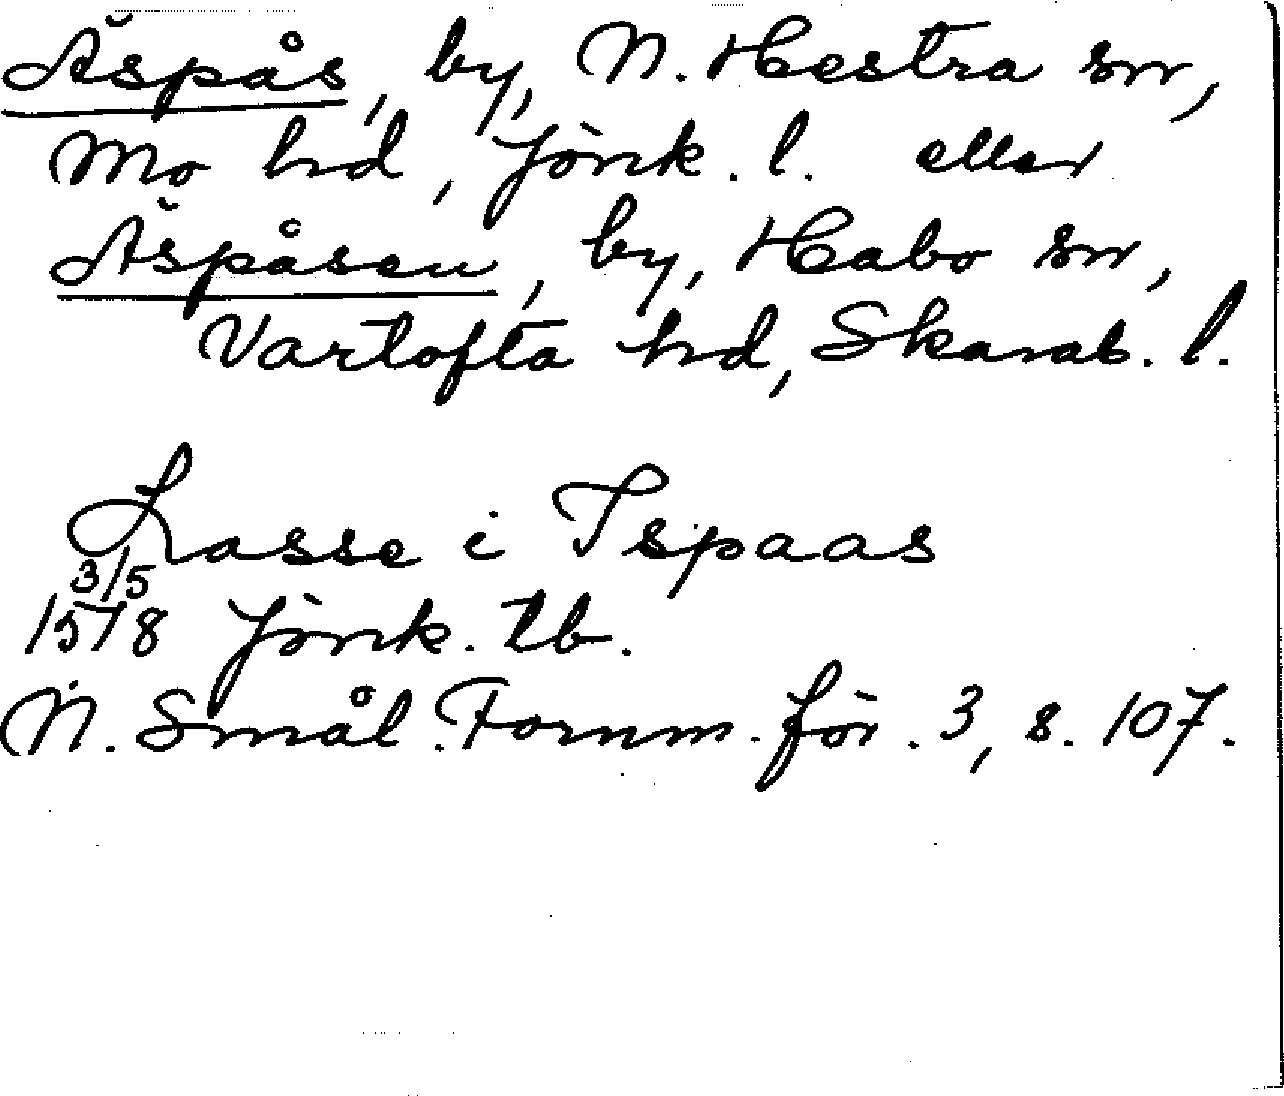 Äspås, by, N. Hestra sn,
Mo hd, Jönk. l. eller
Äspåsen, by, Habo sn,
Vartofta hd, Skarab. l.
Lasse i Ispaas
3/5
1578 Jönk. tb.
N. Smål. Fornm. för. 3, s. 107.